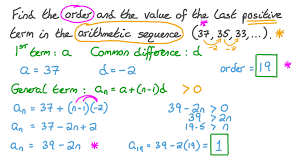 Find the order and the value of the last positive
term in the arithmetic sequence (37, 35, 33, ...).
-2 -2
1st term : a Common difference : d
a = 37 d = -2 order = 19 *
General term : aₙ = a + (n-1)d > 0
aₙ = 37 + (n-1)(-2) 39 - 2n > 0
39 > 2n
aₙ = 37 - 2n + 2 19.5 > n
aₙ = 39 - 2n * a₁₉ = 39 - 2(19) = 1